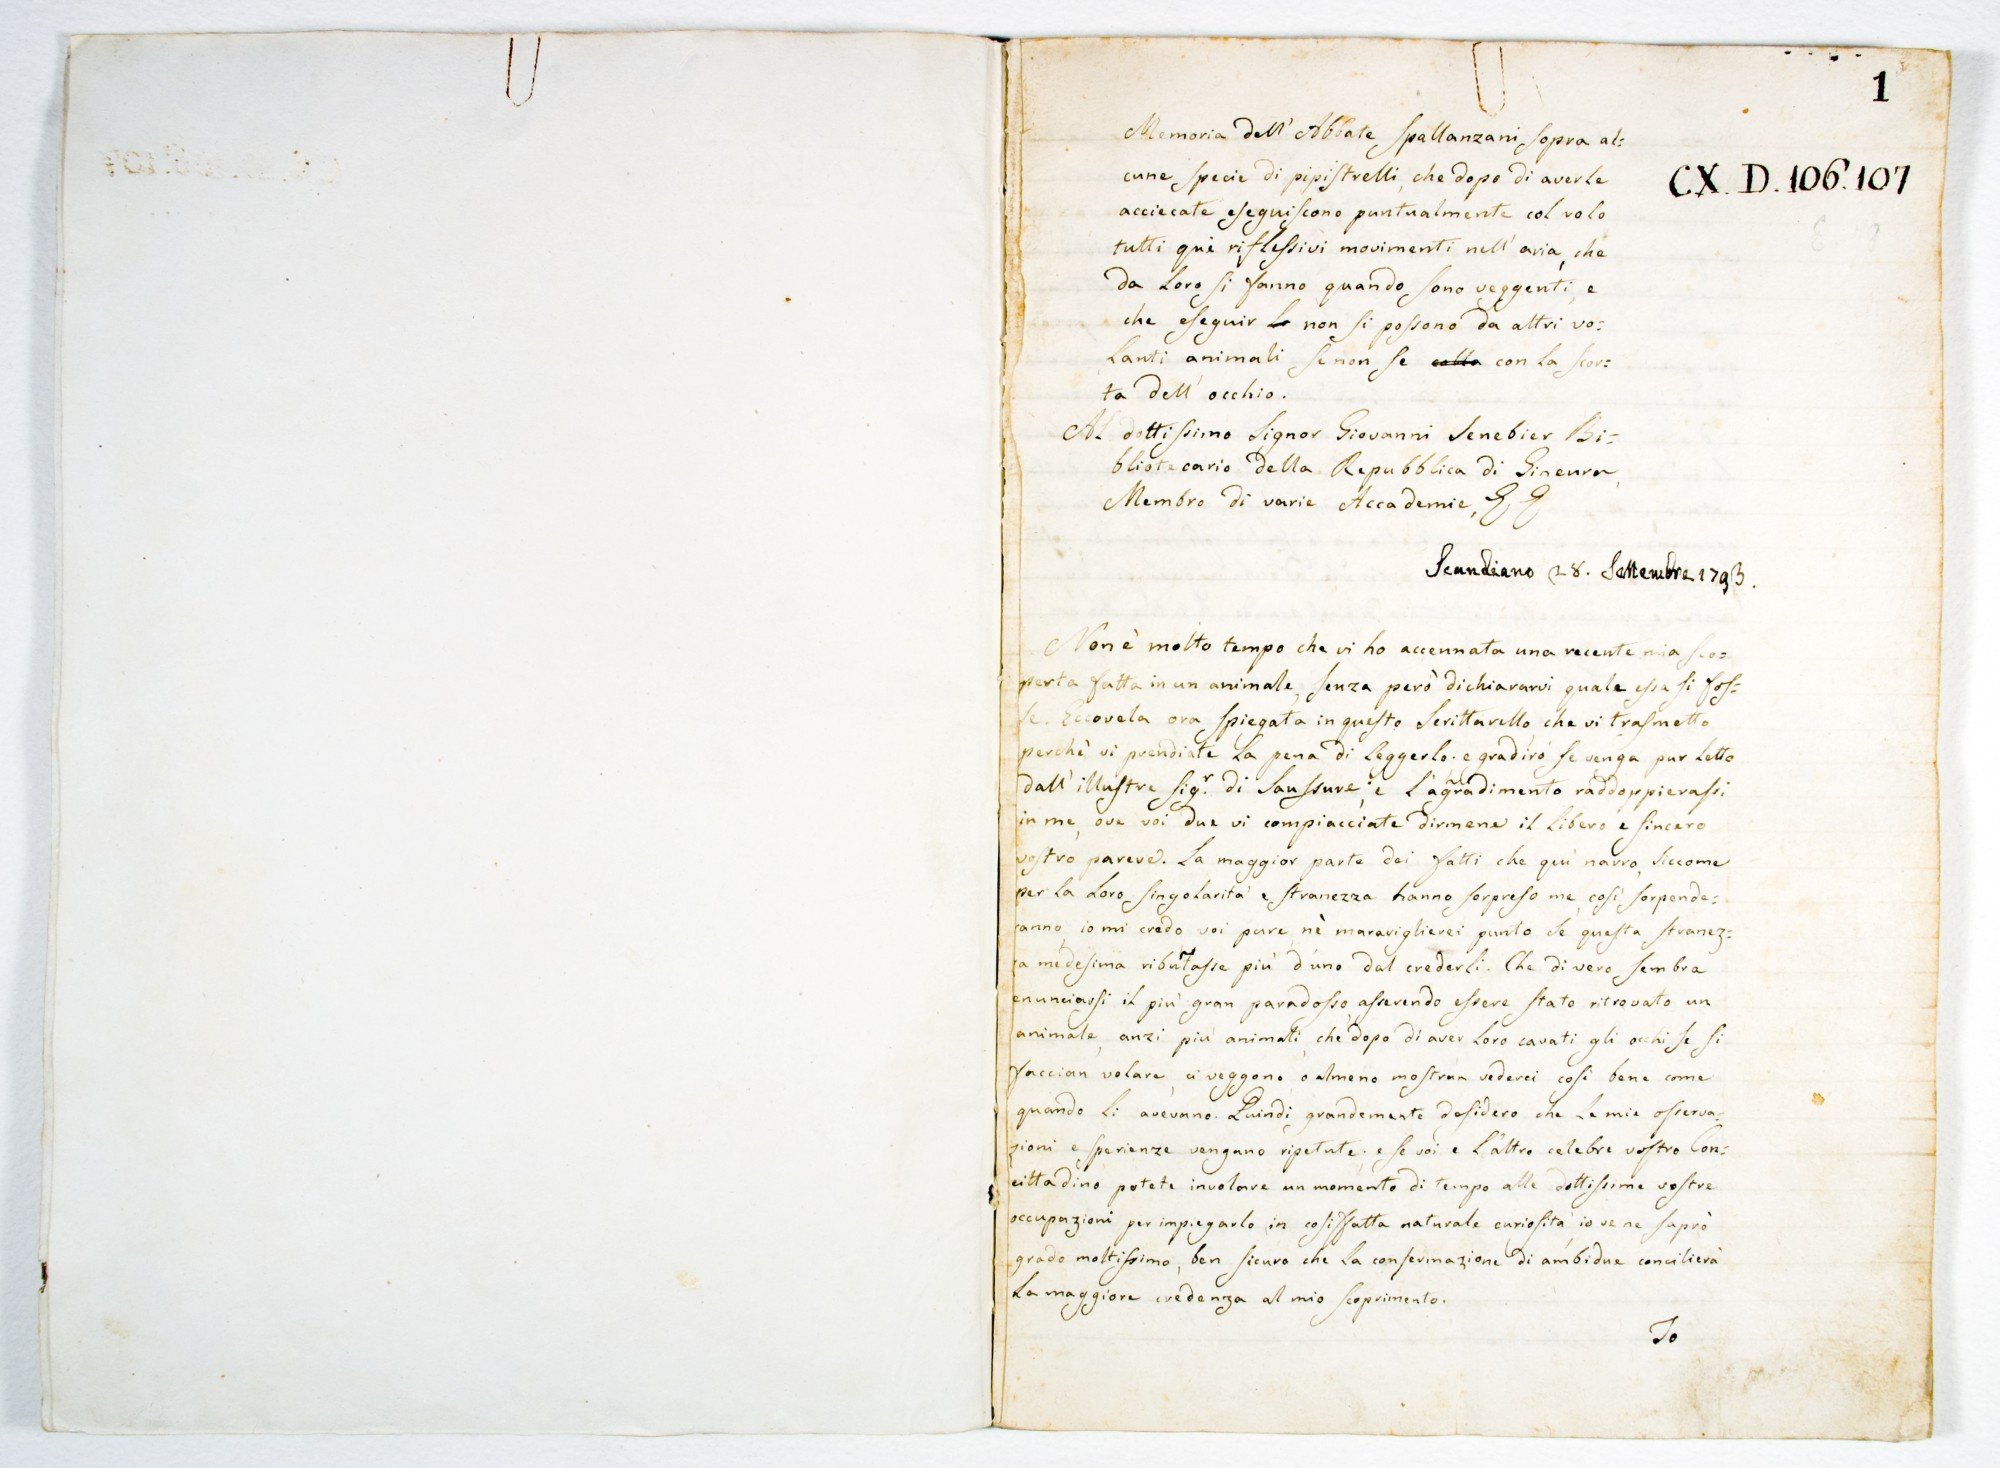 1
CX. D. 106. 107
Memoria dell' Abbate Spallanzani sopra al:
cune specie di pipistrelli, che dopo di averle
acciecate eseguiscono puntualmente col volo
tutti què riflessivi movimenti nell' aria, che
da loro si fanno quando sono veggenti, e
che eseguir non si possono da altri vo:
lanti animali se non se colla con la scor:
ta dell' occhio.
Al dottissimo Signor Giovanni Senebier Bi:
bliotecario della Repubblica di Ginevra,
Membro di varie Accademie,
Scandiano 28. Settembre 1793.
Non è molto tempo che vi ho accennata una recente mia sco:
perta fatta in un animale, senza però dichiararvi quale essa si fos:
se. Eccovela ora spiegata in questo Scrittarello che vi trasmetto
perchè vi prendiate la pena di leggerlo. e gradirò se venga pur letto
dall' illustre Sigr. di Saussure; e l'aggradimento raddoppierassi
in me, ove voi due vi compiacciate dirmene il libero e sincero
vostro parere. La maggior parte dei fatti che quì narro, siccome
per la loro singolarità e stranezza hanno sorpreso me, così sorpende:
ranno, io mi credo voi pure, nè maraviglierei punto se questa stranez:
za medesima ributasse più d'uno dal crederli. Che di vero sembra
enunciarsi il più gran paradosso, asserendo essere stato ritrovato un
animale, anzi più animali, che dopo di aver loro cavati gli occhi se si
faccian volare, ci veggono, o almeno mostran vederci così bene come
quando li avevano. Quindi grandemente desidero che le mie osserva:
zioni e sperienze vengano ripetute. e se voi e l'altro celebre vostro Con:
cittadino potete involare un momento di tempo alle dottissime vostre
occupazioni per impiegarlo in cosiffatta naturale curiosità io ve ne saprò
grado moltissimo, ben sicuro che la confermazione di ambidue concilierà
la maggiore credenza al mio scoprimento.
Io